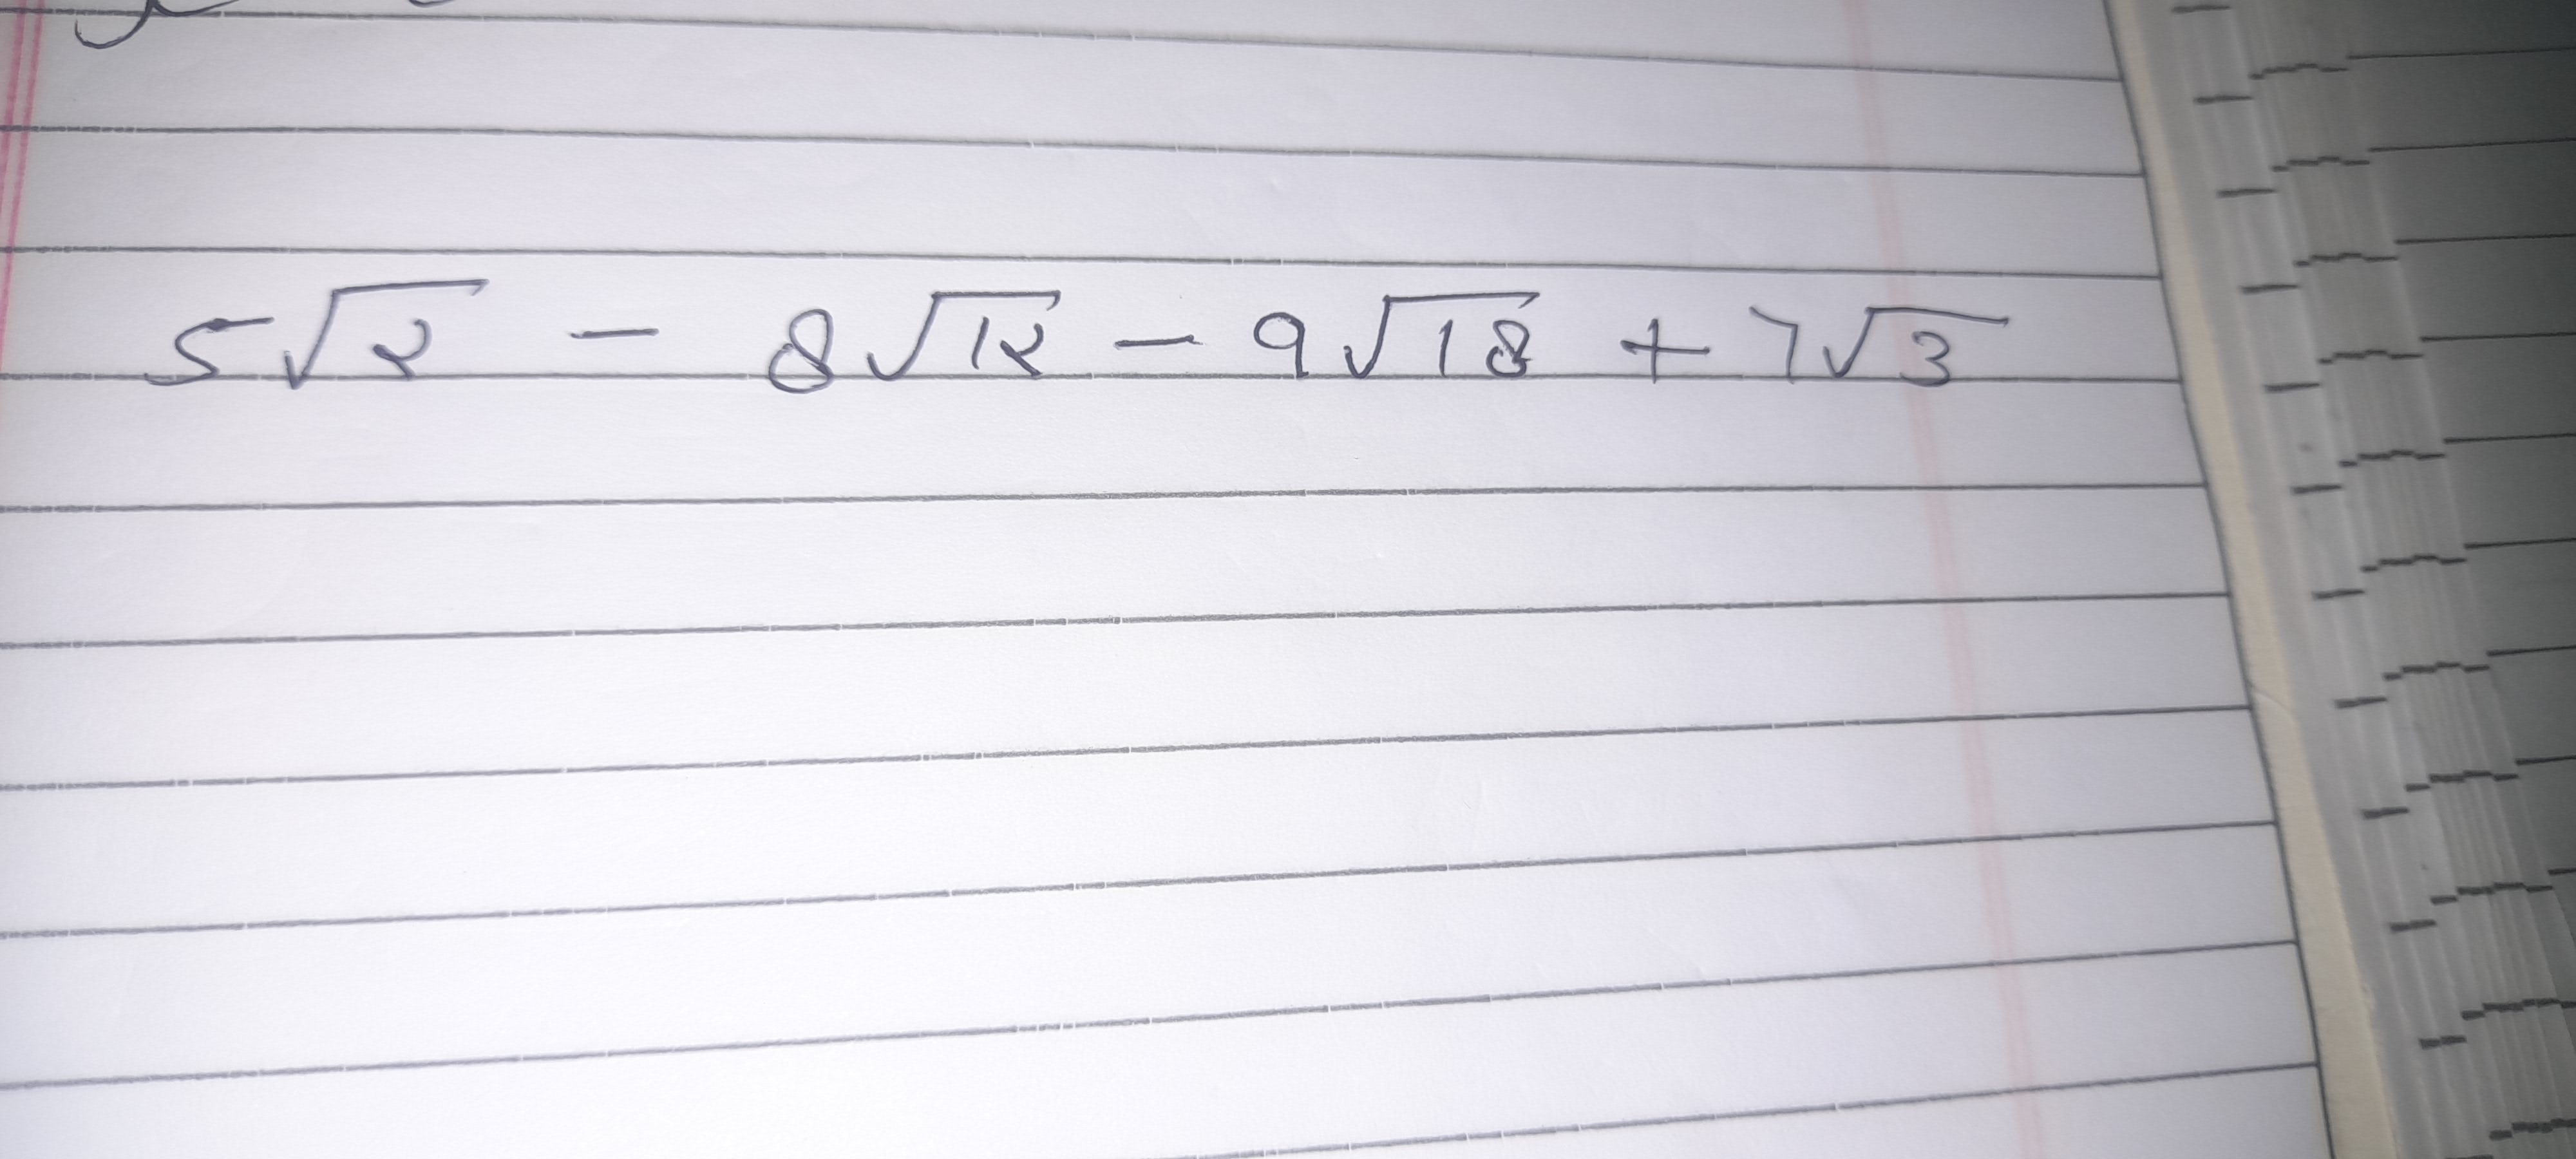 5√2 - 8√12 - 9√18 + 7√3